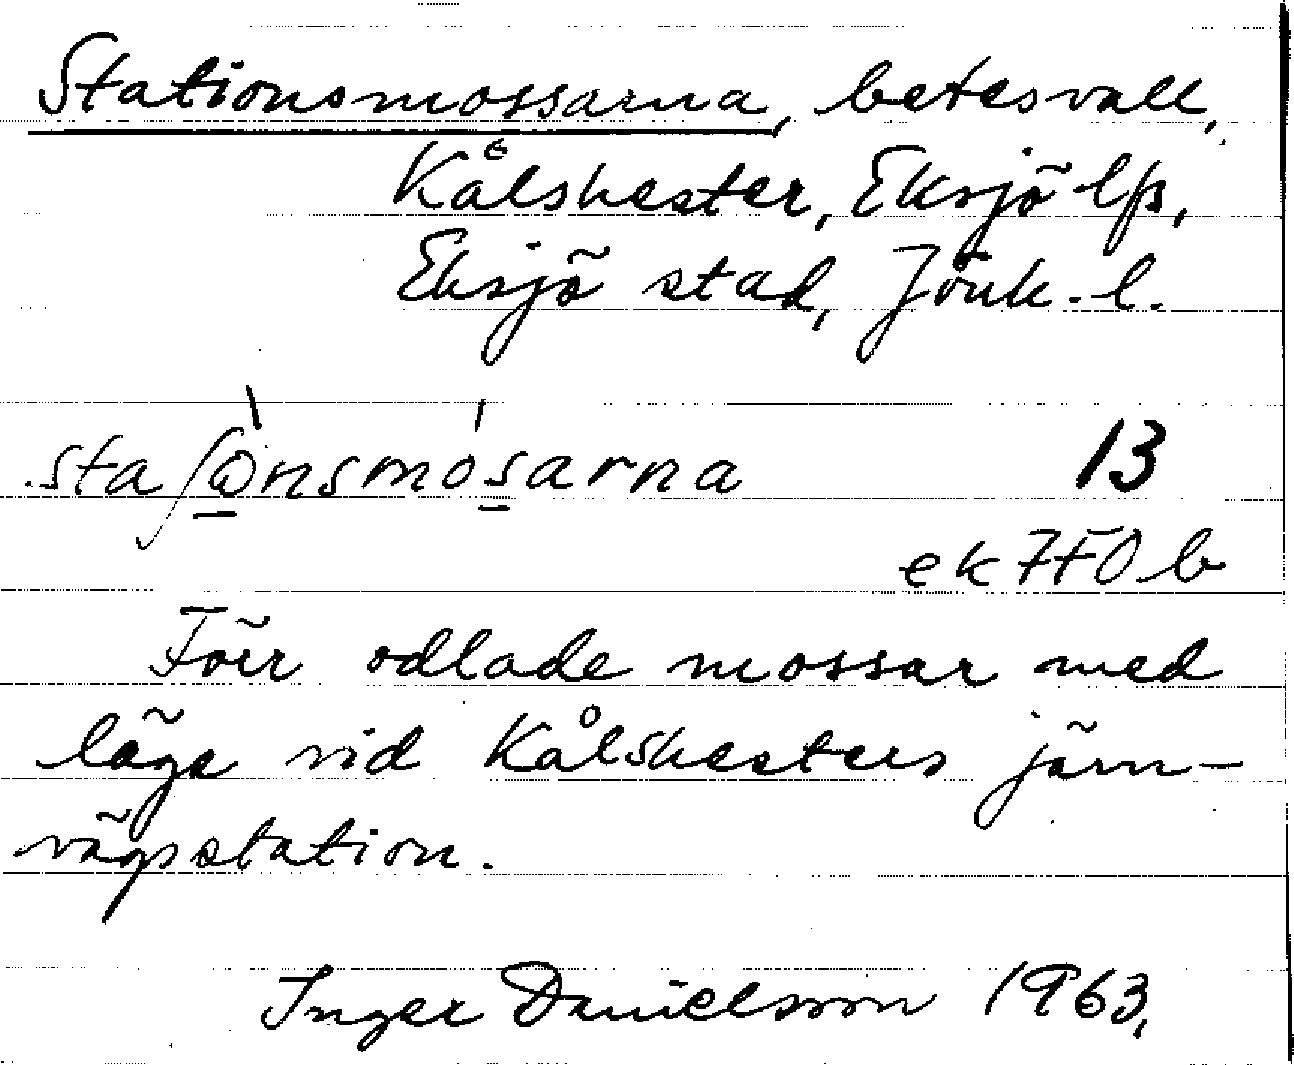 Stationsmossarna, betesvall,
Kålskester, Eksjö lfs,
Eksjö stad, Jönk. l.
staʃònsmósarna 13
ek 7F0b
Förr odlade mossar med
läge vid Kålskesters järn-
vägsstation.
Inger Danielsson 1963,